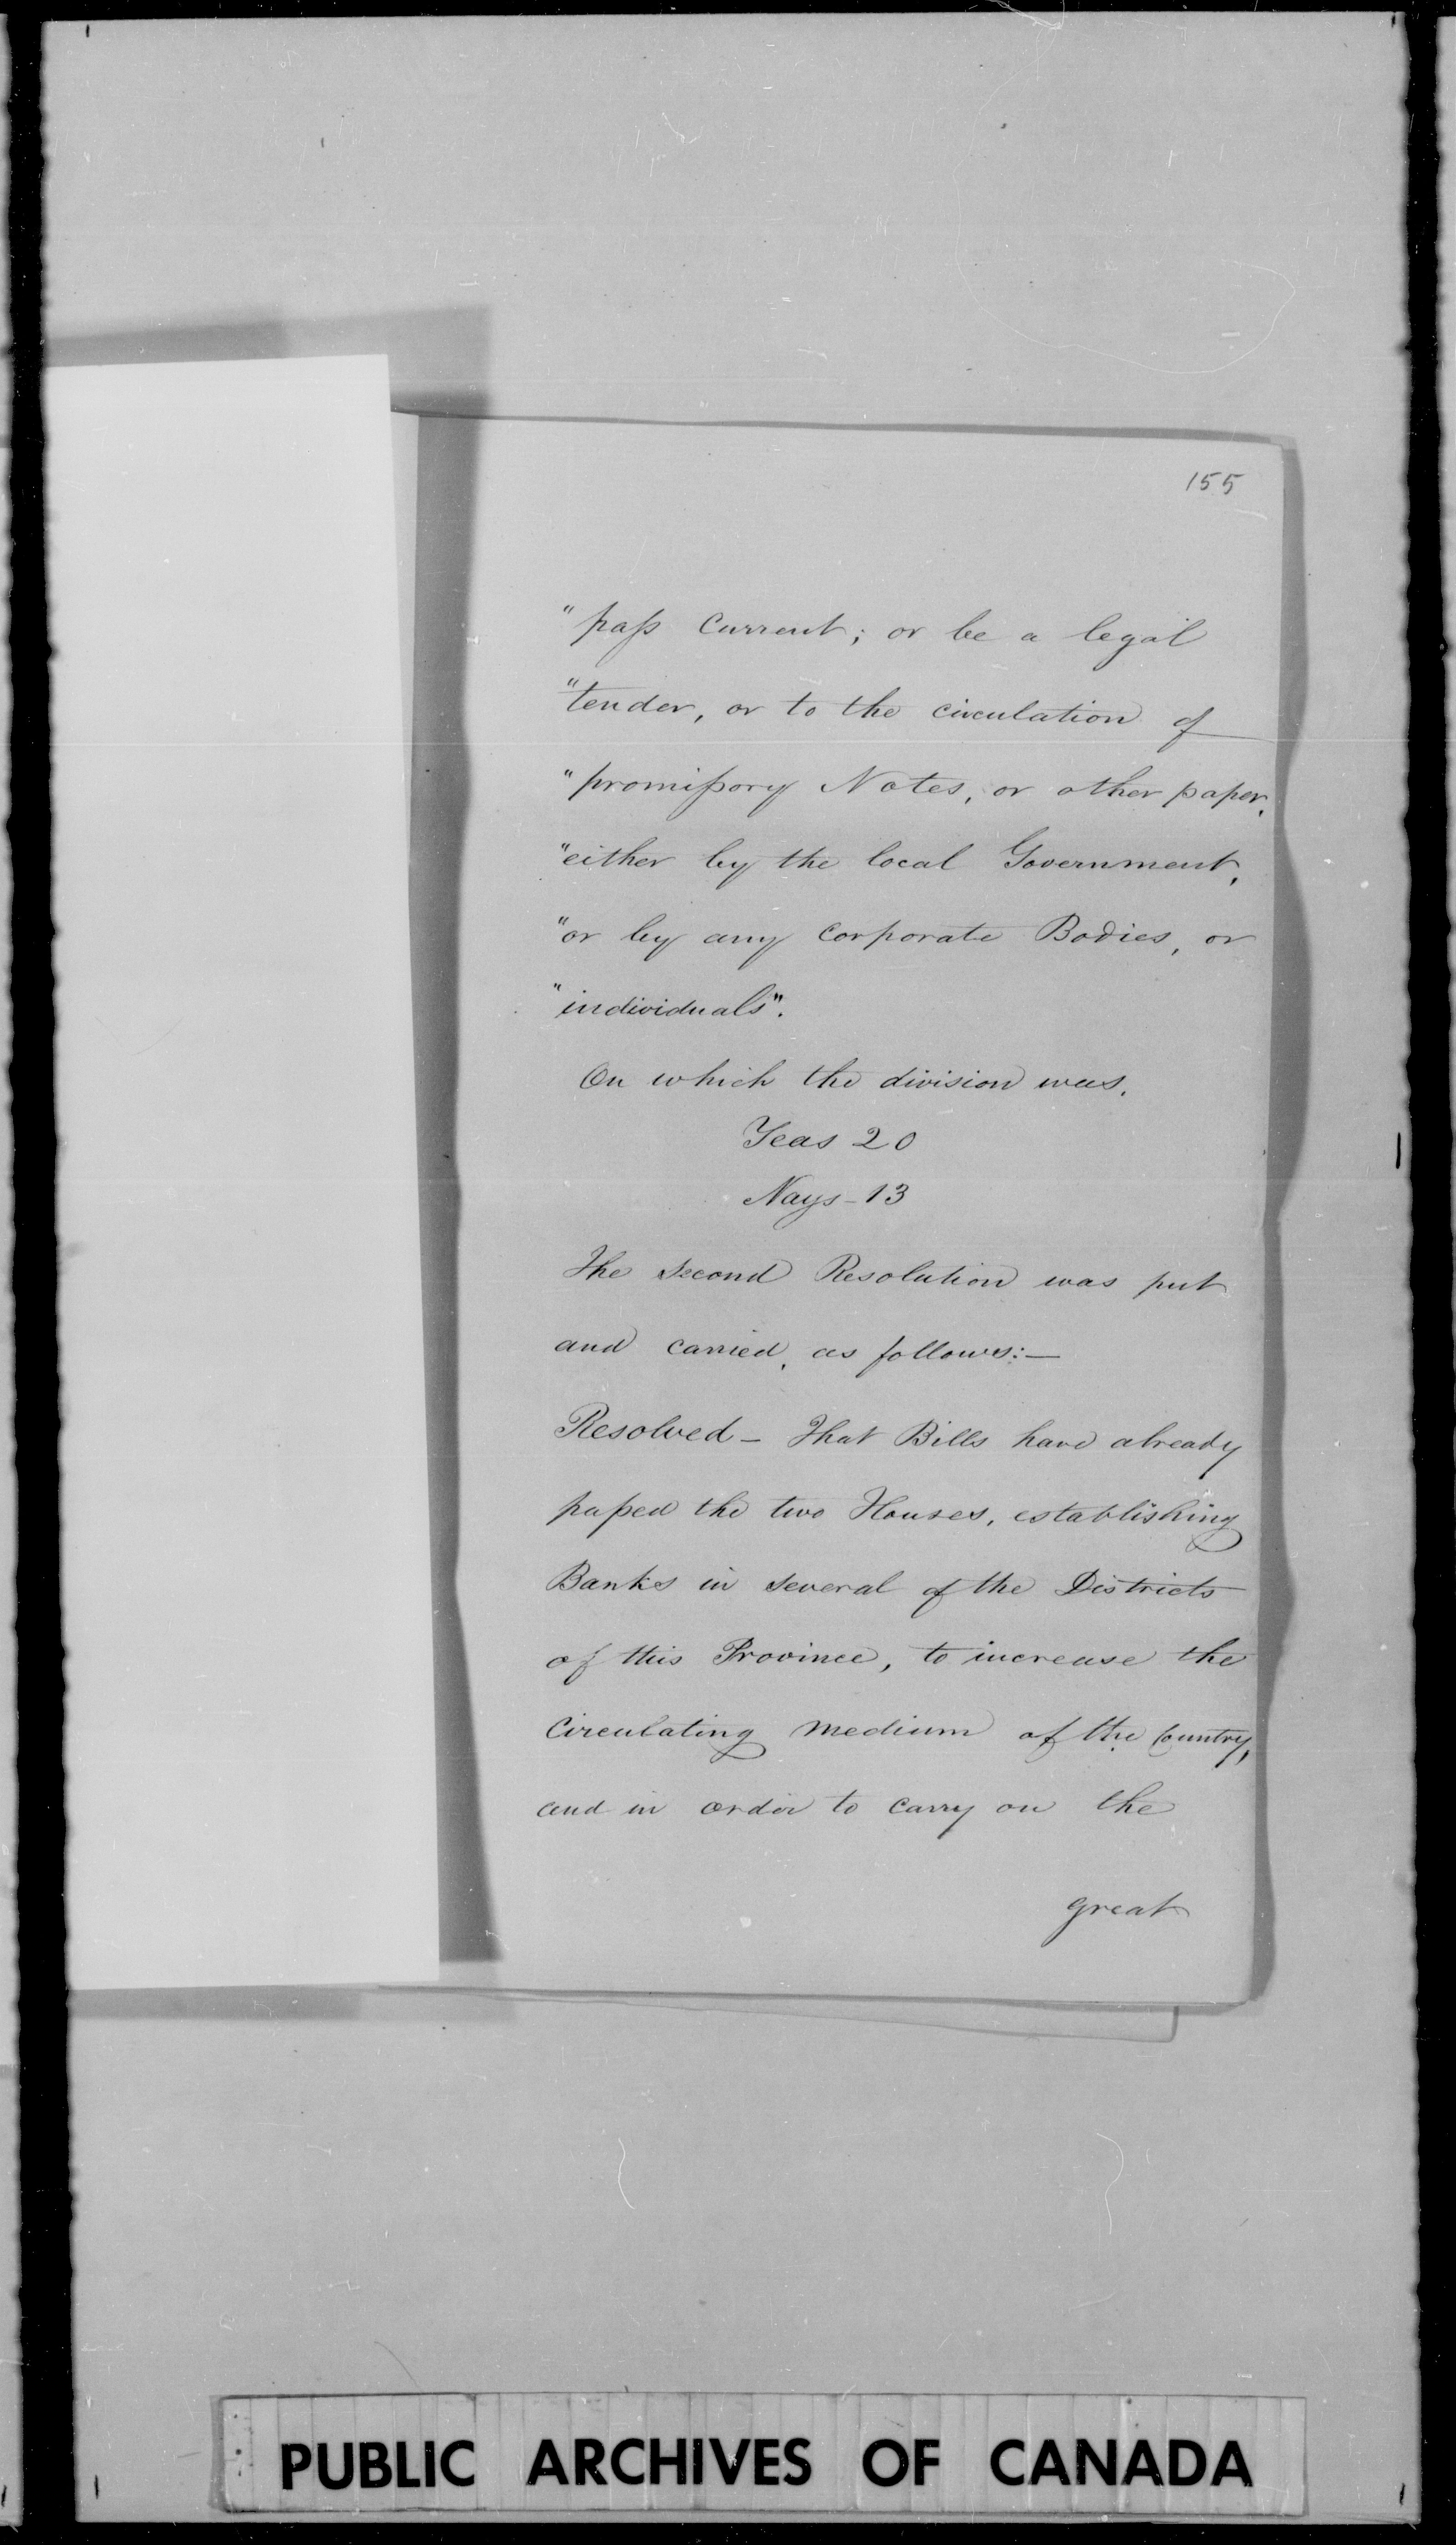 155
"pass Current; or be a legal
"tender, or to the circulation of
"promissory Notes, or other paper,
"either by the local Government,
"or by any Corporate Bodies, or
"individuals".
On which the division was.
Yeas 20
Nays - 13
The Second Resolution was put
and carried, as follows:—
Resolved - That Bills have already
passed the two Houses, establishing
Banks in several of the Districts
of this Province, to increase the
Circulating Medium of the Country,
and in order to carry on the
great
PUBLIC ARCHIVES OF CANADA